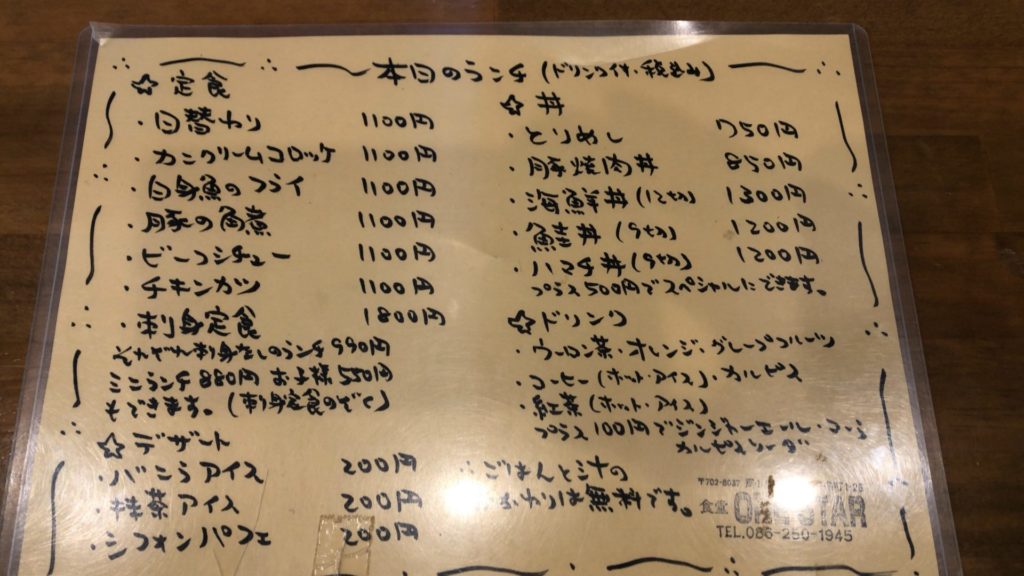 本日のランチ (ドリンク付・税込み)
☆ 定食
・日替わり 1100円
・カニクリームコロッケ 1100円
・白身魚のフライ 1100円
・豚の角煮 1100円
・ビーフシチュー 1100円
・チキンカツ 1100円
・刺身定食 1800円
それぞれ刺身なしのランチ 990円
ミニランチ 880円 お子様 550円
もできます。(刺身定食のぞく)
☆ デザート
・バニラアイス 200円
・抹茶アイス 200円
・シフォンパフェ 200円
☆ 丼
・とりめし 750円
・豚焼肉丼 850円
・海鮮丼 (12切) 1300円
・鮭丼 (9切) 1200円
・ハマチ丼 (9切) 1200円
プラス500円でスペシャルにできます。
☆ ドリンク
・ウーロン茶・オレンジ・グレープフルーツ
・コーヒー (ホット・アイス)・カルピス
・紅茶 (ホット・アイス)
プラス100円でジンジャーエール・コーラ
カルピスソーダ
・ごはんと汁の
おかわりは無料です。
〒702-8037
食堂 STAR
TEL.086-250-1945